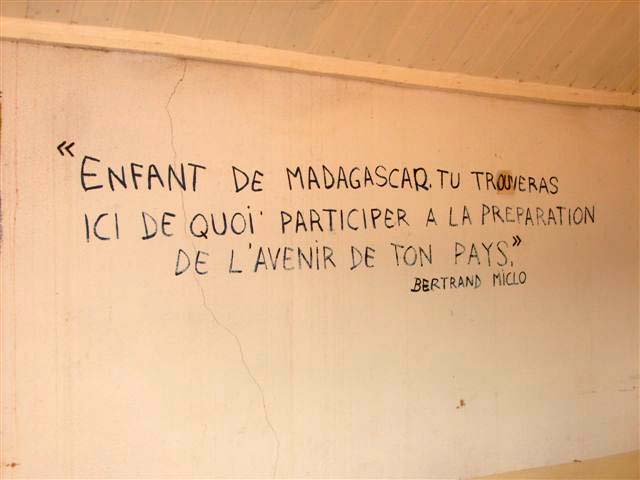 « ENFANT DE MADAGASCAR. TU TROUVERAS
ICI DE QUOI PARTICIPER A LA PREPARATION
DE L'AVENIR DE TON PAYS. »
BERTRAND MICLO